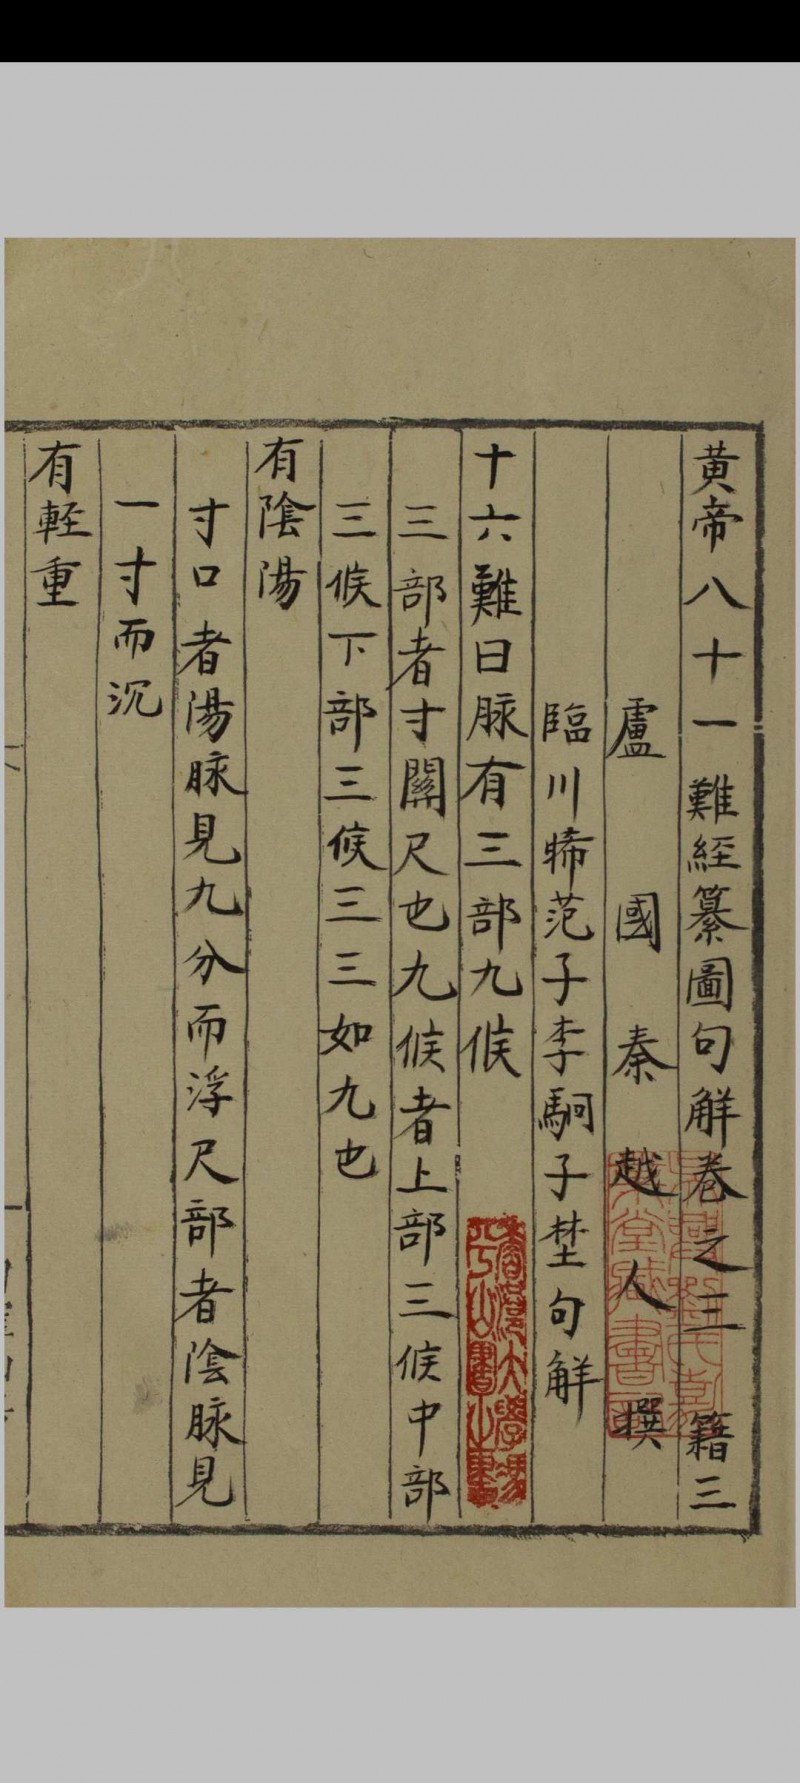 黃帝八十一難經纂圖句解卷之三 籍三
盧國秦越人撰
臨川晞范子李駉子埜句解
十六難曰脉有三部九候
三部者寸關尺也九候者上部三候中部
三候下部三候三三如九也
有陰陽
寸口者陽脉見九分而浮尺部者陰脉見
一寸而沉
有輕重